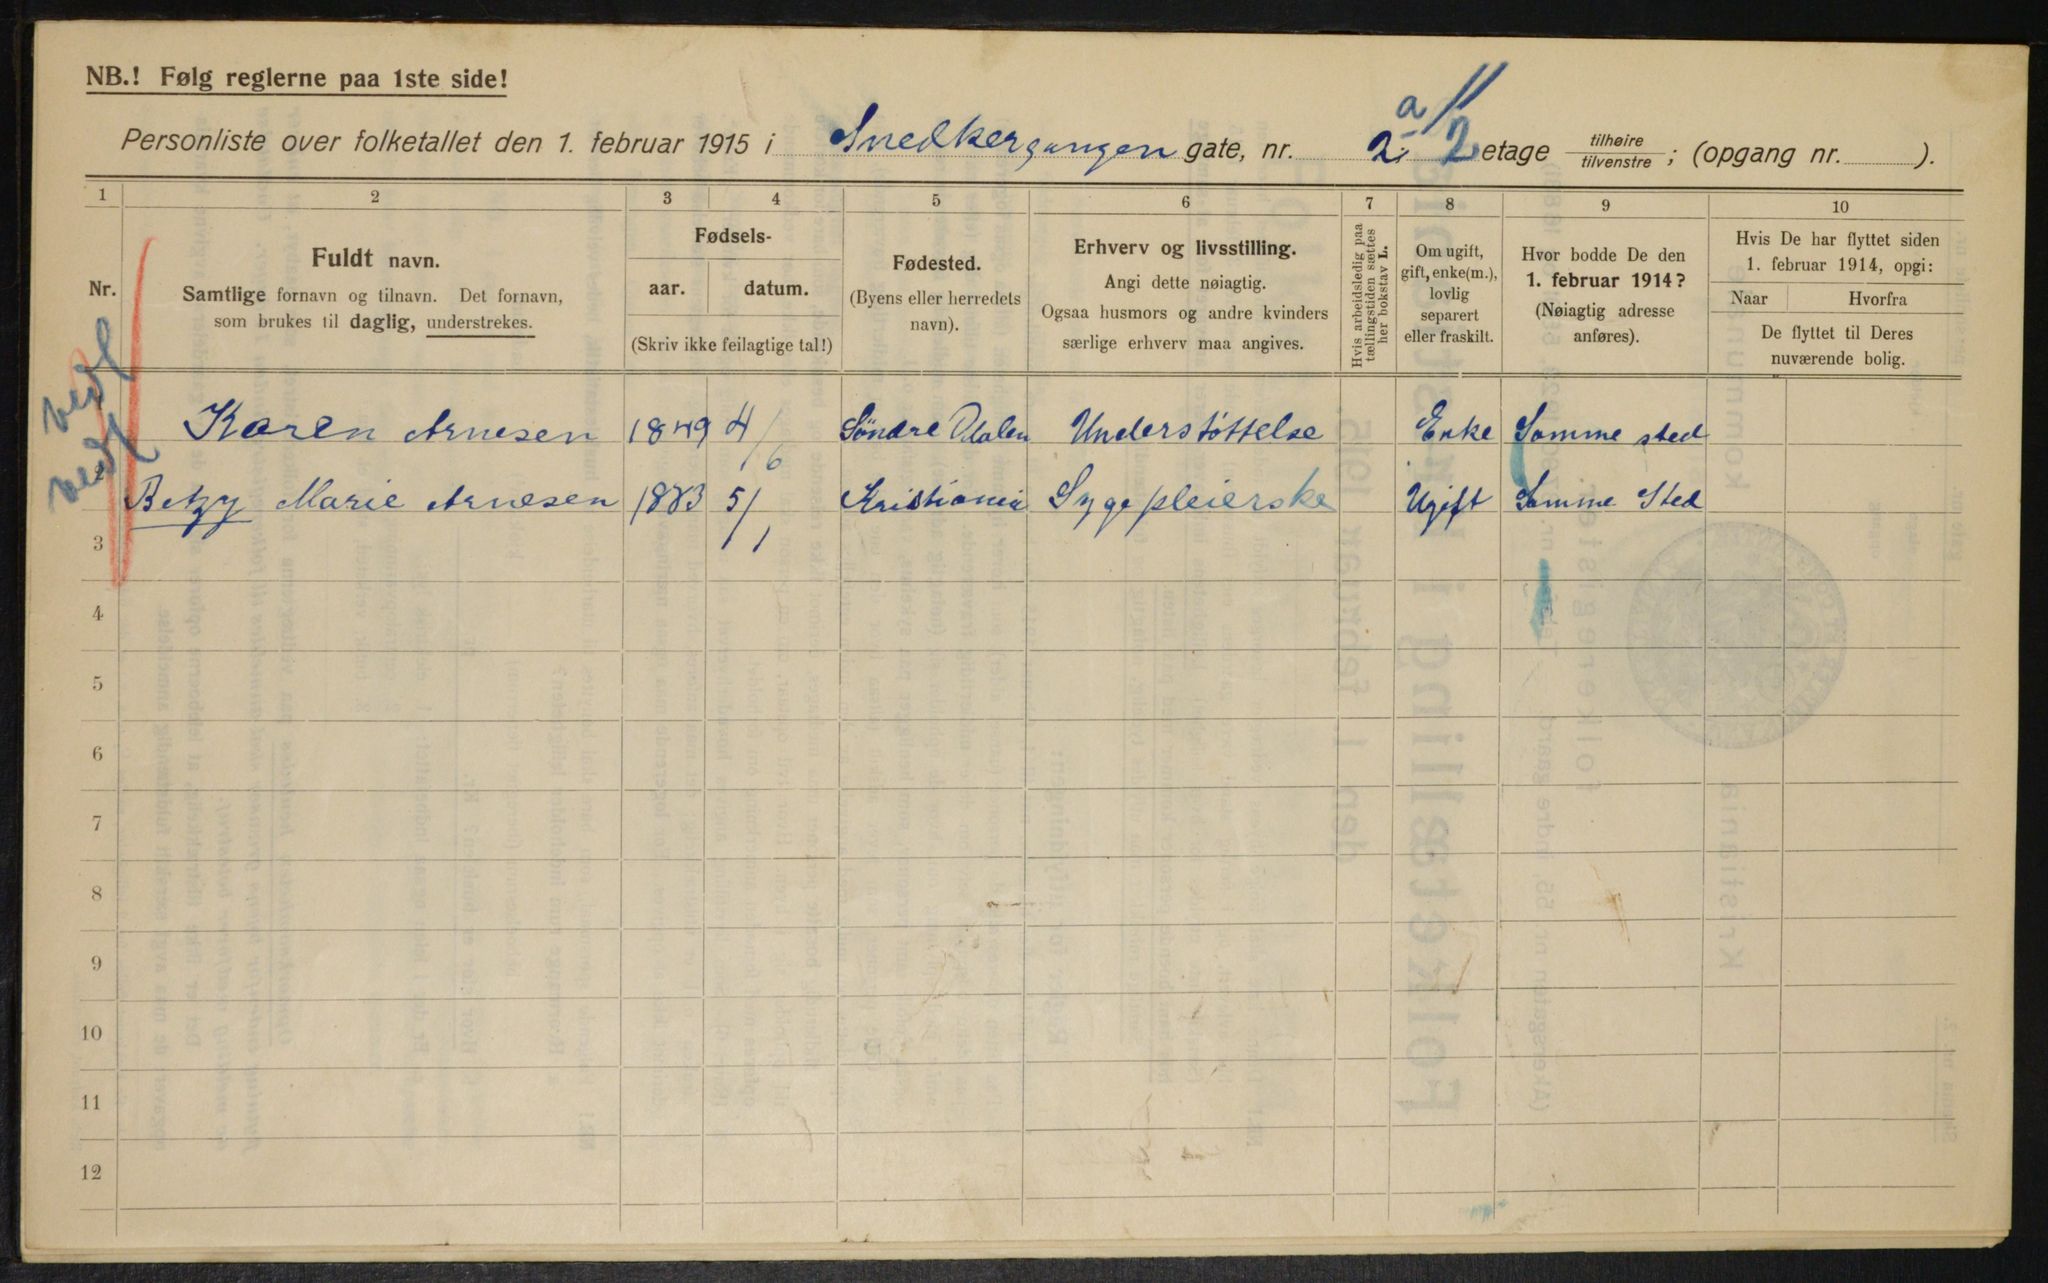 NB.! Følg reglerne paa 1ste side!
Personliste over folketallet den 1. februar 1915 i Snedkergangen gate, nr. 2 a 2 etage tilhøire tilvenstre; (opgang nr. ).
1 2 3 4 5 6 7 8 9 10
Nr.
Fuldt navn.
Samtlige fornavn og tilnavn. Det fornavn,
som brukes til daglig, understrekes.
Fødsels-
aar. datum.
(Skriv ikke feilagtige tal!)
Fødested.
(Byens eller herredets
navn).
Erhverv og livsstilling.
Angi dette nøiagtig.
Ogsaa husmors og andre kvinders
særlige erhverv maa angives.
Hvis arbeidsledig paa
tællingstiden sættes
her bokstav L.
Om ugift,
gift, enke(m.),
lovlig
separert
eller fraskilt.
Hvor bodde De den
1. februar 1914?
(Nøiagtig adresse
anføres).
Hvis De har flyttet siden
1. februar 1914, opgi:
Naar Hvorfra
De flyttet til Deres
nuværende bolig.
Karen Arnesen 1849 4/6 Söndre Odalen Understöttelse Enke Samme sted
Betzy Marie Arnesen 1883 5/1 Kristiania Sygepleierske Ugift Samme Sted
3
4
5
6
7
8
9
10
11
12